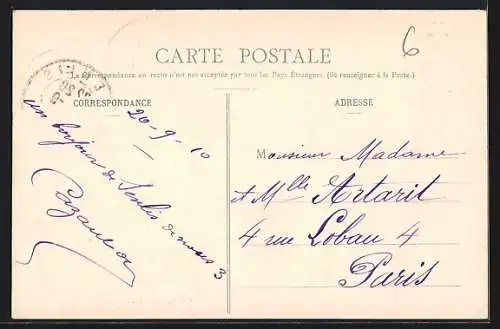 6
CARTE POSTALE
La Correspondance au recto n'est pas acceptée par tous les Pays Etrangers. (Se renseigner à la Poste.)
CORRESPONDANCE
20-9-10
un bonjour de Senlis de nous 3
ADRESSE
Monsieur Madame
et Mlle Artarit
4 rue Lobau 4
Paris